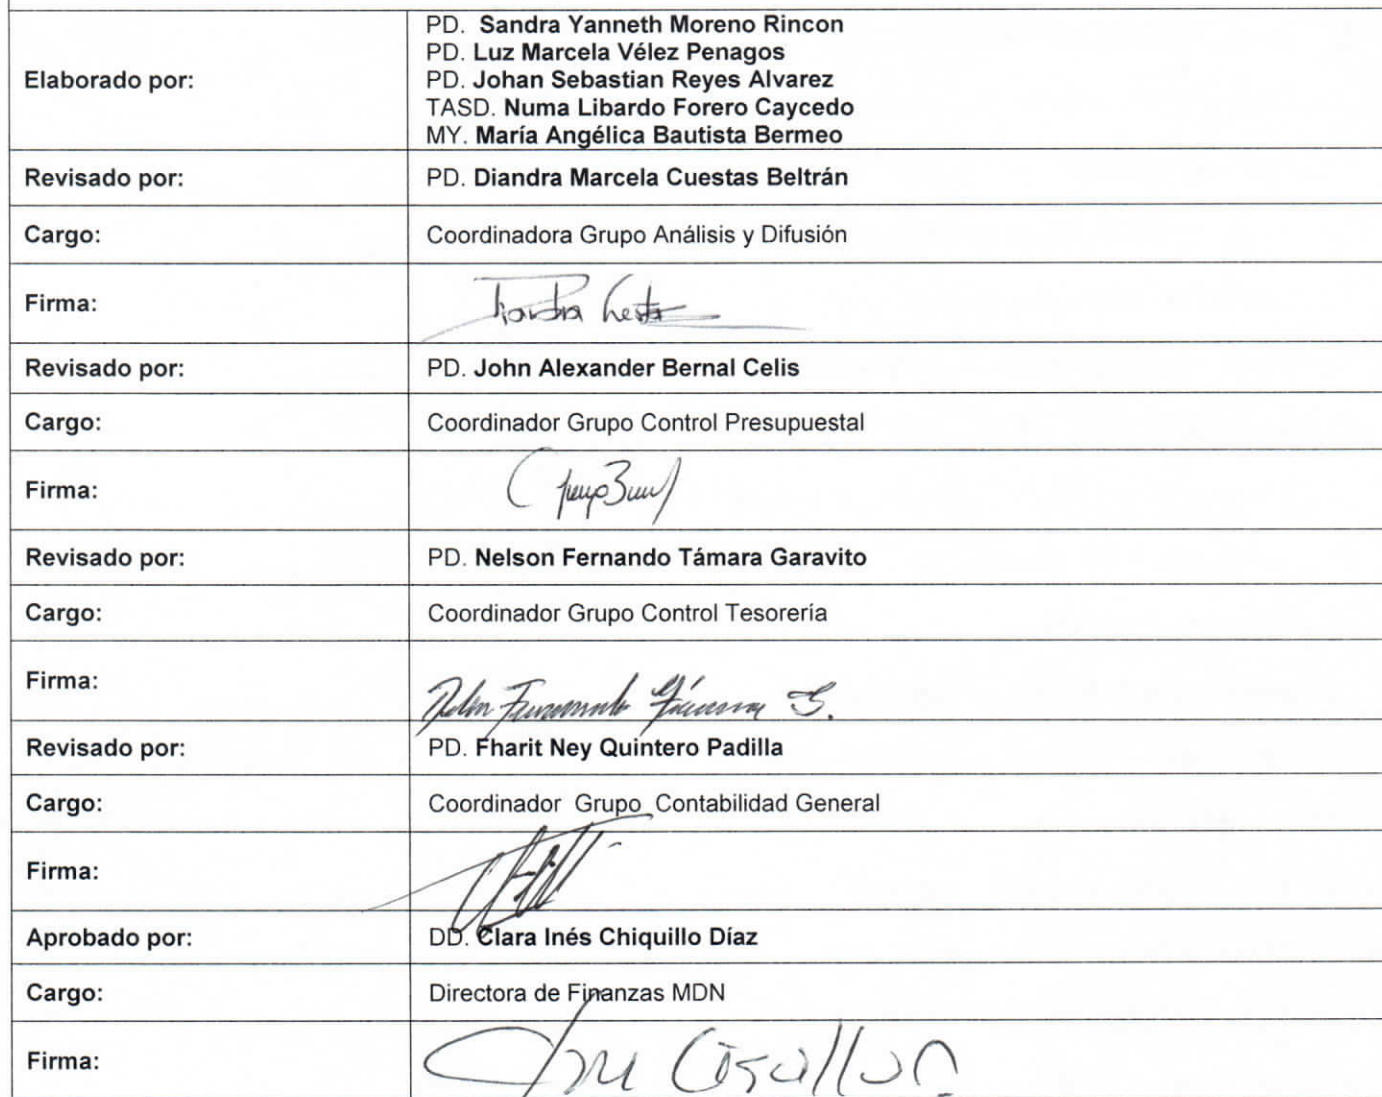 Elaborado por:
PD. Sandra Yanneth Moreno Rincon
PD. Luz Marcela Vélez Penagos
PD. Johan Sebastian Reyes Alvarez
TASD. Numa Libardo Forero Caycedo
MY. María Angélica Bautista Bermeo
Revisado por: PD. Diandra Marcela Cuestas Beltrán
Cargo: Coordinadora Grupo Análisis y Difusión
Firma:
Revisado por: PD. John Alexander Bernal Celis
Cargo: Coordinador Grupo Control Presupuestal
Firma:
Revisado por: PD. Nelson Fernando Támara Garavito
Cargo: Coordinador Grupo Control Tesorería
Firma:
Revisado por: PD. Fharit Ney Quintero Padilla
Cargo: Coordinador Grupo Contabilidad General
Firma:
Aprobado por: DD. Clara Inés Chiquillo Díaz
Cargo: Directora de Finanzas MDN
Firma: